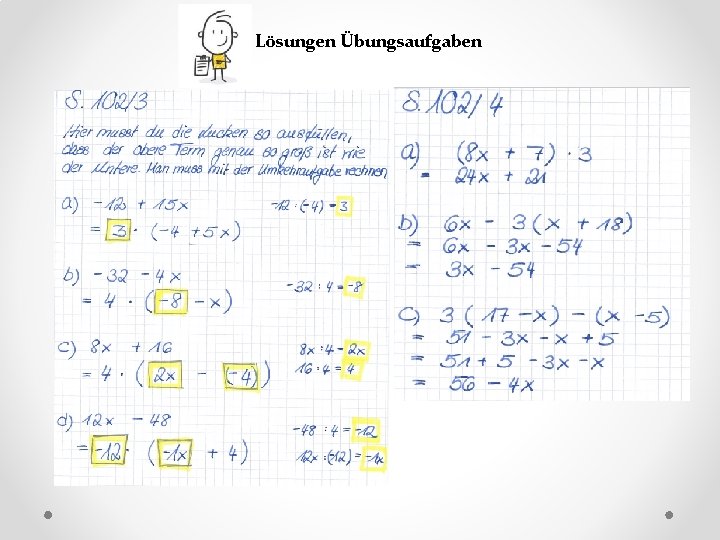 Lösungen Übungsaufgaben
S. 102/3
Hier musst du die Lücken so ausfüllen,
dass der obere Term genau so groß ist wie
der untere. Man muss mit der Umkehraufgabe rechnen
a) -12 + 15x -12 : (-4) = 3
= 3 · (-4 + 5x)
b) -32 - 4x -32 : 4 = -8
= 4 · (-8 - x)
c) 8x + 16 8x : 4 = 2x
= 4 · (2x - (-4)) 16 : 4 = 4
d) 12x - 48 -48 : 4 = -12
= -12 · (-1x + 4) 12x : (-12) = -1x
S. 102/4
a) (8x + 7) · 3
= 24x + 21
b) 6x - 3(x + 18)
= 6x - 3x - 54
= 3x - 54
c) 3(17 - x) - (x - 5)
= 51 - 3x - x + 5
= 51 + 5 - 3x - x
= 56 - 4x